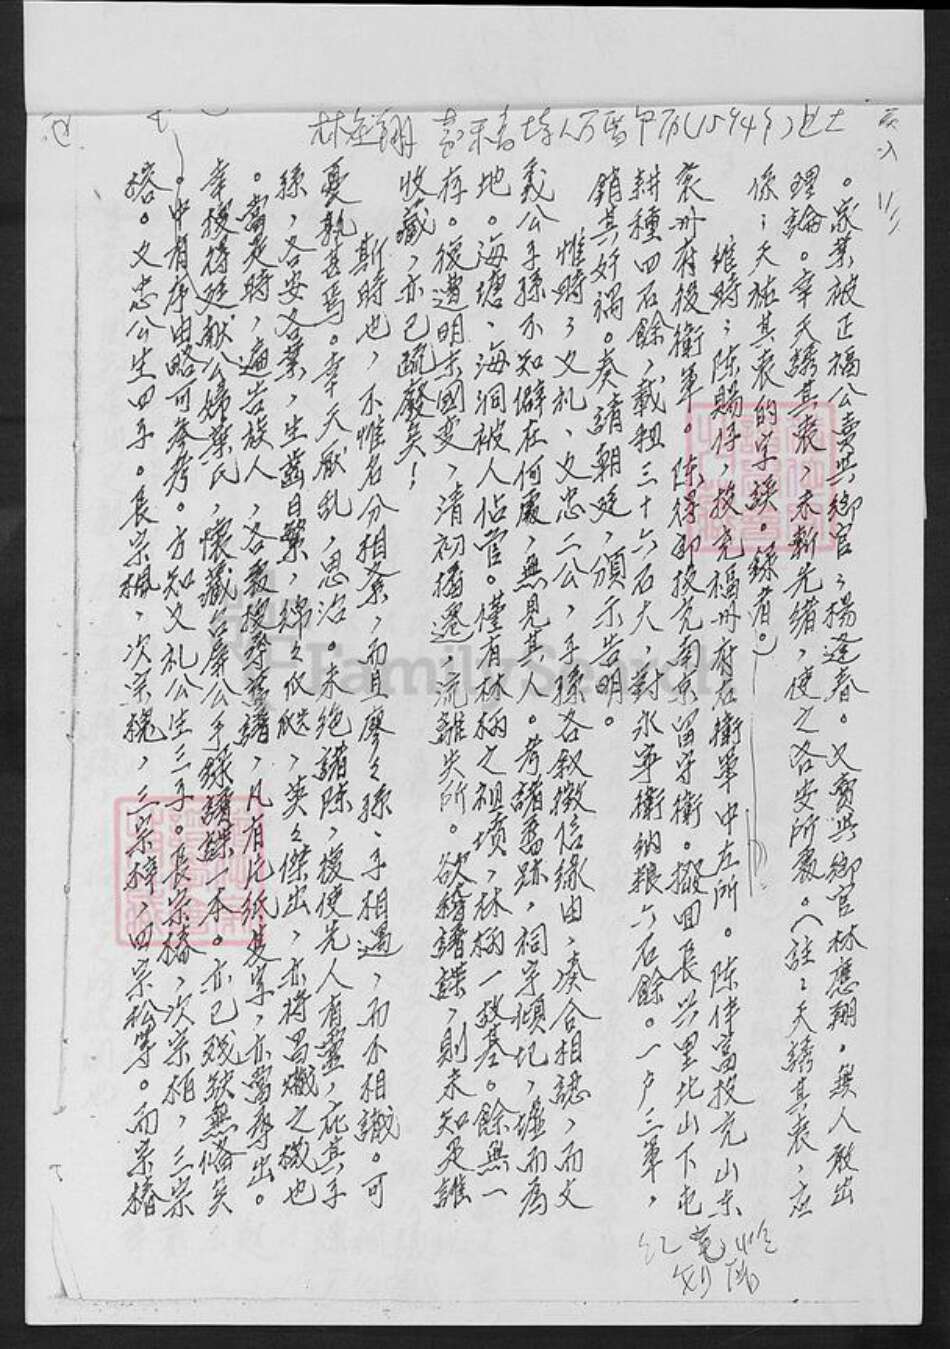 林應翔 萬 1594年 進士
。家業被正福公賣與鄉官：楊逢春。又賣與鄉官林應翔。無人敢出
理論。幸天誘其衷，未斬先緒，使之各安所處。（註：天誘其衷，应
係：天祐其衷的字誤。錄者。）
維時：陳賜仔，投充福州府右衛軍中左所。陳伴富投充山东
袞州府投衛軍。陳得卻投充南京留守衛。撥回長兴里北山下屯
耕種四石餘，載租三十六石大，對永寧衛納粮六石餘。一户三軍，
銷其奸禍。奏請朝廷，頒示告明。
惟時：文礼、文忠二公，子孫各叙徵信缘由，湊合相認，而文
義公子孫不知僻在何處，無見其人。考諸舊跡，祠宇傾圮，墟而為
地。海墘、海洞被人佔管。僅有林柄之祖墳，林柄一故基。餘無一
存。復遭明末國变，清初播遷，流離失所。欲稽譜諜，則未知是誰
收藏，亦已疏廢矣！
斯時也，不惟名分相紊，而且廖之孫、子相遇，而不相識。可
憂孰甚焉。幸天厭乱，思治。未绝諸陈，復使先人有靈，庇其子
孫，各安各業，生齒日繁，綿々似瓞，英々傑出，亦將昌熾之機也
。當是時，遍告族人，各家搜尋舊譜，凡有片纸隻字，亦當尋出。
幸搜得廷献公婦葉氏，懷藏公手錄譜諜一本。亦已残缺無俻矣
。中有序由略可参考。方知文礼公生三子。長宗椿，次宗柏，三宗
榕。文忠公生四子。長宗楓，次宗槐，三宗梓，四宗松等。而宗椿